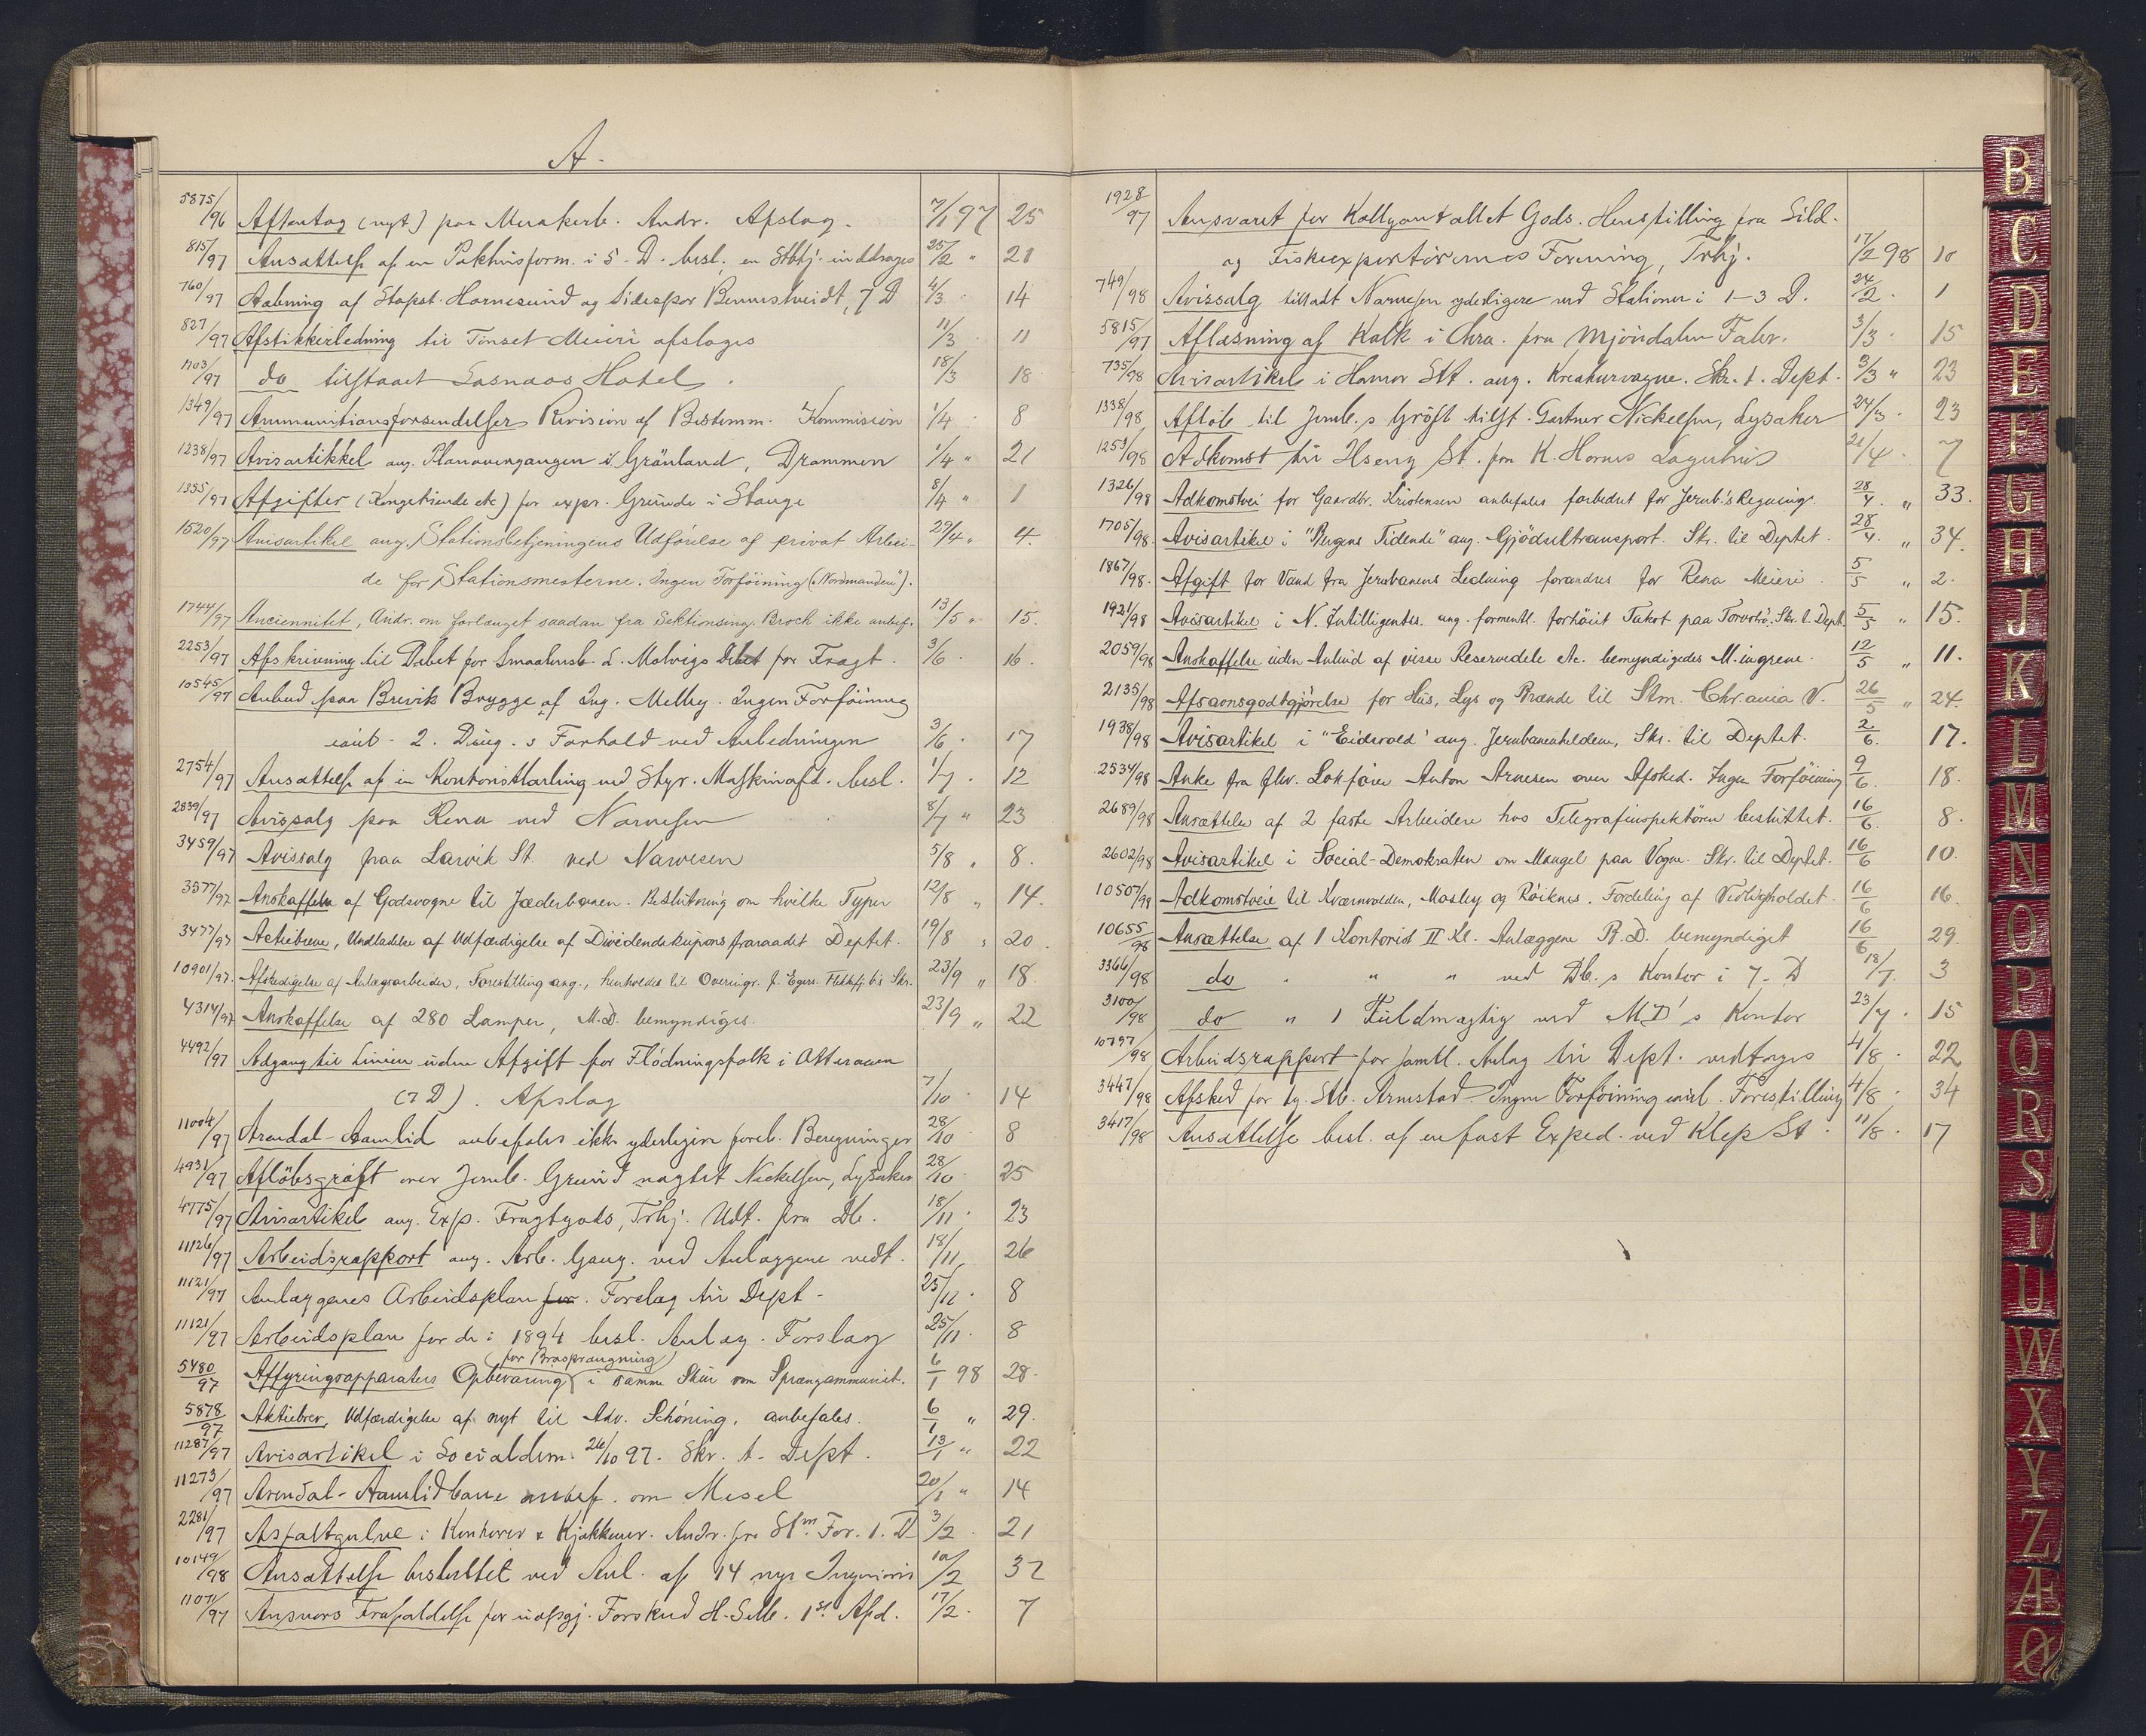 A.
5875/96 Aftentog (nyt) paa Merakerb. Andr. Afslag. 7/1 97 25
815/97 Ansættelse af en Pakhusform. i 5. D. besl. en Stbtj. inddrages 25/2 " 21
760/97 Aabning af Stopst. Hornesund og Sidespor Bennestveidt, 7 D 4/3 . 14
827/97 Afstikkerledning til Tönset Meieri afslaaes 11/3 . 11
1103/97 do tilstaaet Losnaas Hotel. 18/3 18
1349/97 Ammunitionsforsendelser Revision af Bestemm. Kommission 1/4 . 8
1238/97 Avisartikkel ang. Planovergangen i Grönland, Drammen 1/4 " 21
1355/97 Afgifter (Kongetiende etc) for expr. Grunde i Stange 8/4 " 1
1520/97 Avisartikel ang. Stationsbetjeningens Udförelse af privat Arbei- 29/4 " 4.
de for Stationsmesterne. Ingen Forföining ("Nordmanden").
1744/97 Anciennitet, Andr. om forlænget saadan fra Sektionsing. Broch ikke anbef. 13/5 " 15.
2253/97 Afskrivning til Debet for Smaalensb. L. Molvigs Debet for Fragt. 3/6 . 16.
10545/97 Anbud paa Brevik Brygge af Ing. Melby. Ingen Forföining
2. Ding.s Forhold ved Anbedningen 3/6 . 17
2754/97 Ansættelse af en Kontoristlærling ved Styr. Maskinafd. besl. 1/7 . 12
2839/97 Avissalg paa Rena ved Narvesen 8/7 " 23
3459/97 Avissalg paa Larvik St. ved Narvesen 5/8 " 8.
3577/97 Anskaffelse af Godsvogne til Jæderbanen. Beslutning om hvilke Typer 12/8 " 14.
3477/97 Actiebreve, Undladelse af Udfærdigelse af Dividendekupons fraraadet Deptet. 19/8 " 20.
10901/97. Afskedigelse af Anlægsarbeider, Forestilling ang., henholdes til Overingr. f. Egers. Flekkefj. b.s Skr. 23/9 " 18.
4314/97 Anskaffelse af 280 Lamper, M.D. bemyndiges. 23/9 " 22
4492/97 Adgang til Linien uden Afgift for Flödningsfolk i Otteraaen
(7 D). Afslag 7/10 . 14
11004/97 Arendal-Aamlid anbefales ikke yderligere foreb. Beregninger 28/10 8
4931/97 Aflöbsgröft over Jernb. Grund nægtet Nickelsen, Lysaker 28/10 . 25
4775/97 Avisartikel ang. Exp. Fragtgods, Trhj. Udt. fra Db. 18/11 . 23
11126/97 Arbeidsrapport ang. Arb. Gang. ved Anlæggene vedt. 18/11 26
11121/97 Anlæggenes Arbeidsplan for. Forslag til Dept- 25/11 . 8
11121/97 Arbeidsplan for de i 1894 besl. Anlæg. Forslag 25/11 . 8
5480/97 Affyringsapparaters Opbevaring (for Brosprængning) i samme Skur som Sprængammunit. 6/1 98 28.
5878/97 Aktiebrev, Udfærdigelse af nyt til Adv. Schöning, anbefales. 6/1 " 29.
11287/97 Avisartikel i Socialdem. 26/10 97. Skr. t. Dept. 13/1 " 22
11273/97 Arendal-Aamlidbane anbef. om Mesel 20/1 " 14
2281/97 Asfaltgulve i Kontorer & Kjøkkener. Andr. fra Stm. For. 1. D 3/2 . 21
10149/98 Ansættelse besluttet ved Anl. af 14 nye Ingeniører 10/2 32
11071/97 Ansvars Frafaldelse for uopgj. Forskud H-Selb. 1st. Afd. 17/2 . 7
1928/97 Ansvaret for Kollyantallet Gods. Henstilling fra Sild-
og Fiskeexportörernes Forening, Trhj. 17/2 98 10
749/98 Avissalg tilladt Narvesen yderligere ved Stationer i 1-3 D. 24/2 . 1
5815/97 Aflæsning af Kalk i Chra. fra Mjöndalen Fabr. 3/3 . 15
735/98 Avisartikel i Hamar Stt. ang. Kreaturvogne. Skr. t. Dept. 3/3 " 23
1338/98 Afløb til Jernb.s Gröft tilst. Gartner Nickelsen, Lysaker 24/3 . 23
1259/98 Adkomst til Hseng St. fra K. Hornes Lagerhus 21/4 . 7
1326/98 Adkomstvei for Gaardbr. Kristensen anbefales forbedret for Jernb.'s Regning. 28/4 . " 33.
1705/98. Avisartikel i "Bergens Tidende" ang. Gjödseltransport. Skr. til Deptet. 28/4 . " 34.
1867/98. Afgift for Vand fra Jernbanens Ledning forandres for Rena Meieri. 5/5 " 2.
1921/98 Avisartikel i N. Intelligents. ang. forment. forhöiet Takst paa Torvströ. Skr. t. Dept. 5/5 " 15.
2059/98 Anskaffelse uden Anbud af visse Reservedele etc. bemyndigedes M.ingrene. 12/5 " 11.
2135/98 Afsavnsgodtgjörelse for Hus, Lys og Brænde til Stm. Chr.ania V. 26/5 " 24.
1938/98 Avisartikel i "Eidsvold" ang. Jernbaneheldene, Skr. til Deptet. 2/6. 17.
2534/98 Anke fra fhv. Lokförer Anton Arnesen over Afsked. Ingen Forföining 9/6. 18.
2689/98 Ansættelse af 2 faste Arbeidere hos Telegrafinspektören besluttet. 16/6. 8.
2602/98 Avisartikel i Social-Demokraten om Mangel paa Vogne. Skr. til Deptet. 16/6 10.
10507/98 Adkomstveie til Kværnvolden, Mosby og Röiknes. Fordeling af Vedligeholdet. 16/6 16.
10655/98 Ansættelse af 1 Kontorist II Kl. Anlæggene B.D. bemyndiget 16/6 29.
3366/98 do " " ved Db.s Kontor i 7. D 18/7. 3
3100/98 do " 1 Fuldmægtig ved M.D's Kontor 23/7 . 15
10797/98 Arbeidsrapport for samtl. Anlæg til Dept. vedtages 4/8 . 22
3447/98 Afsked for Stb. Armstad Ingen Forföining Forestilling 4/8 . 34
3417/98 Ansættelse besl. af en fast Exped. ved Klep St. 11/8 . 17
B
C
D
E
F
G
H
J
K
L
M
N
O
P
Q
R
S
T
U
W
X
Y
Z
Æ
Ø